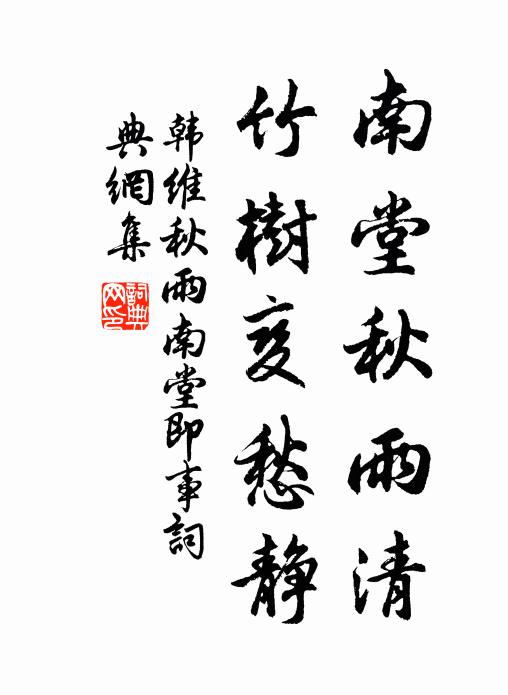 南堂秋雨清
竹樹变愁静
韩維秋雨南堂即事詞
典網集
詞典
网印